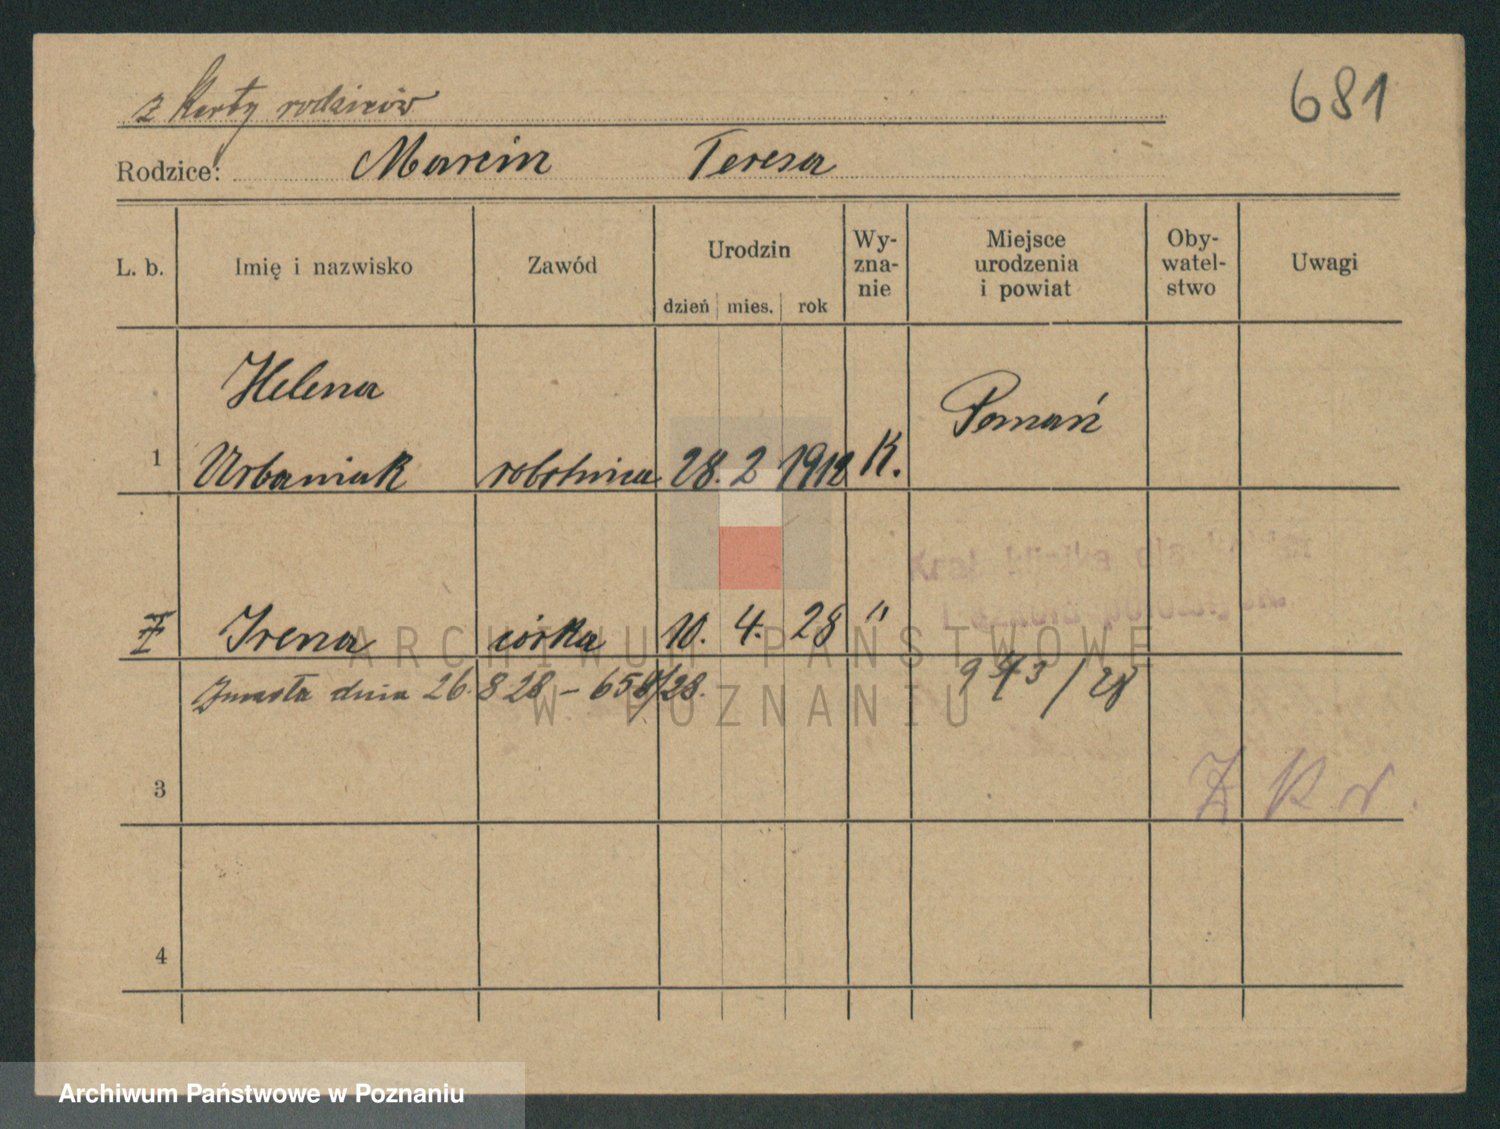 z Karty rodziców
681
Rodzice: Marcin Teresa
L. b. Imię i nazwisko Zawód Urodzin dzień mies. rok Wy-zna-nie Miejsce urodzenia i powiat Oby-watel-stwo Uwagi
Helena
1 Urbaniak robotnica 28. 2 1912 K. Poznań
Irena córka 10. 4. 28 "
Zmarła dnia 26. 8 28 – 658/28. 943/28
3
Z K w.
4
ARCHIWUM PAŃSTWOWE
W POZNANIU
Archiwum Państwowe w Poznaniu